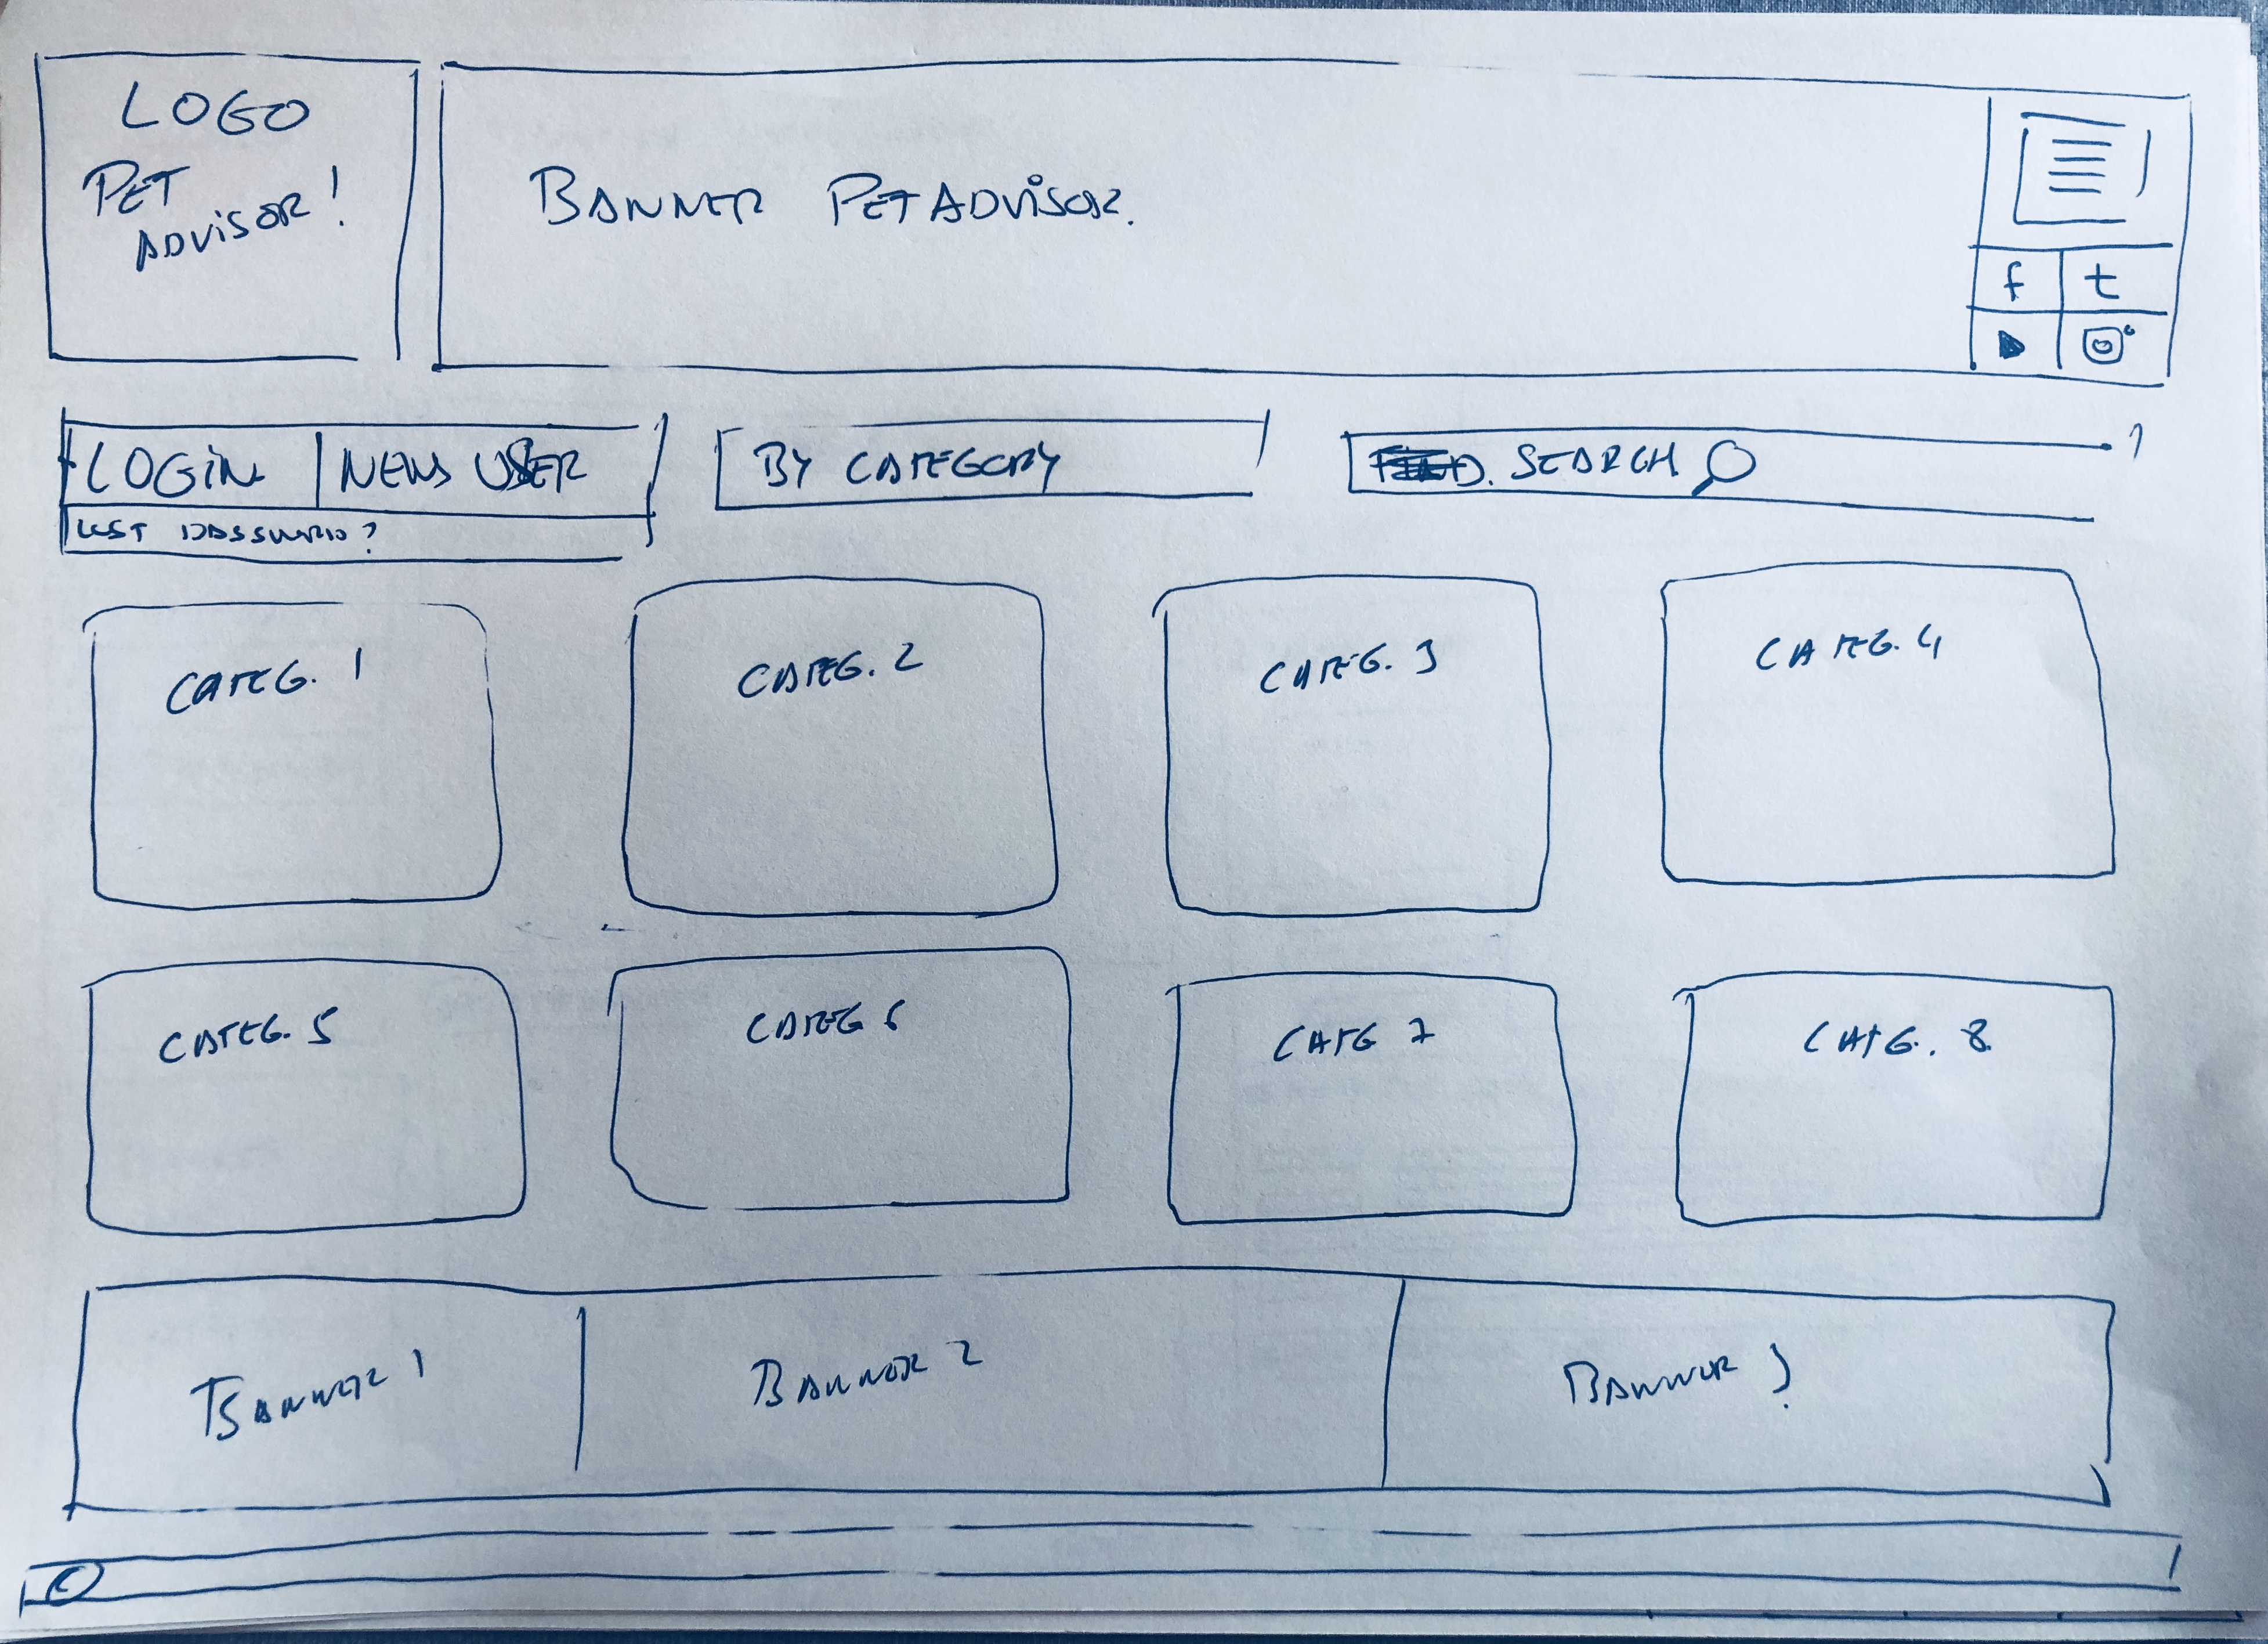 LOGO
PET
ADVISOR!
BANNER PETADVISOR.
f t
LOGIN NEW USER
BY CATEGORY
SEARCH
LOST PASSWORD?
CATEG. 1
CATEG. 2
CATEG. 3
CATEG. 4
CATEG. 5
CATEG 6
CATG 7
CATG. 8
BANNER 1
BANNER 2
BANNER 3
©